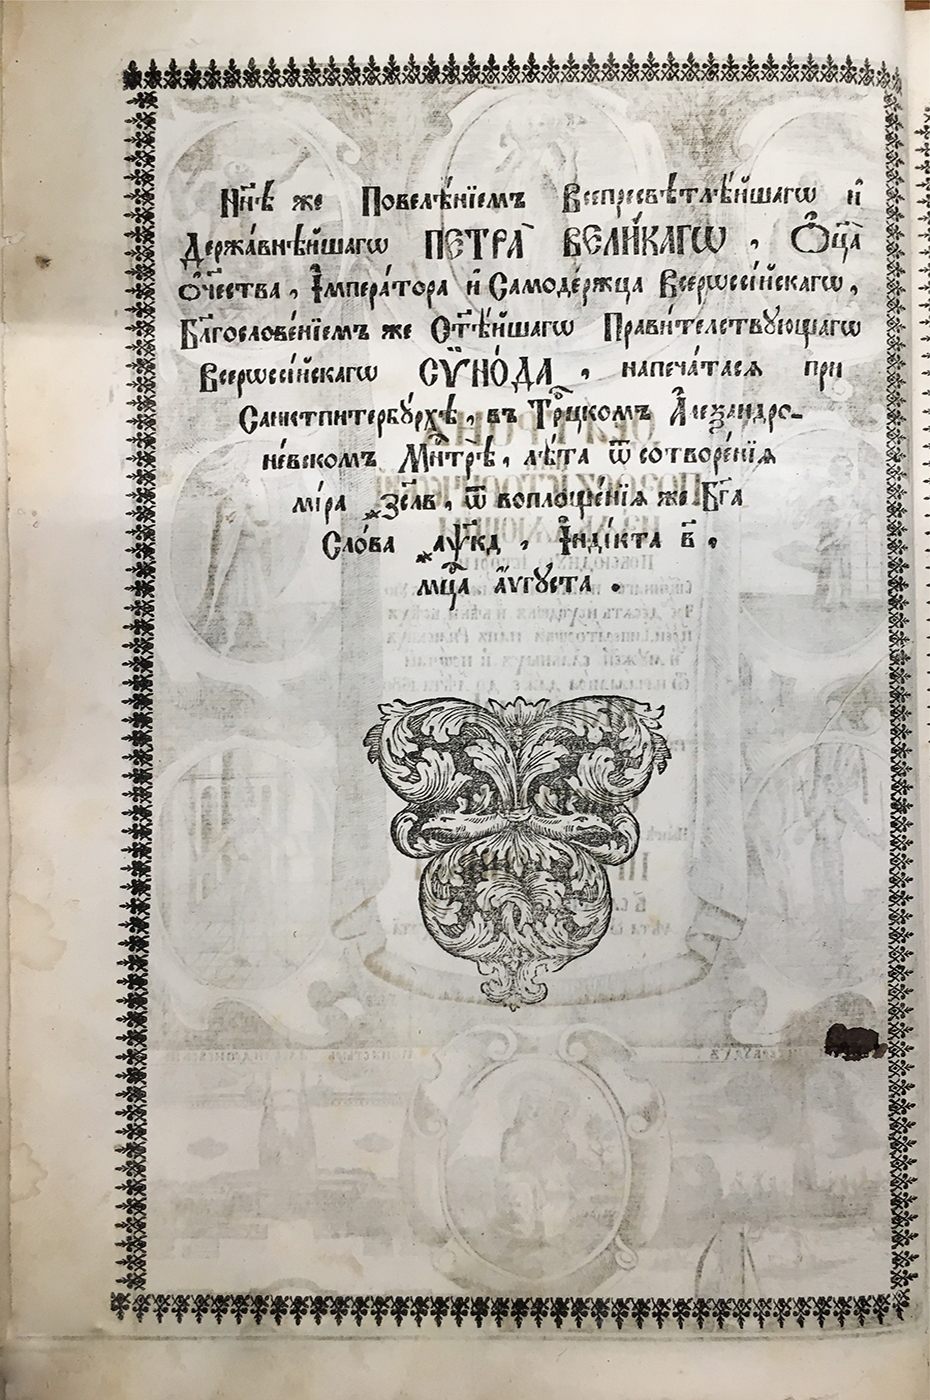 Нн҃ѣ же Повелѣ́нїемъ Всепресвѣтлѣ́йшагѡ и҆
Держа́внѣйшагѡ ПЕТРА̀ ВЕЛИ́КАГѠ , Ѻ҆ц҃а̀
ѻ҆ч҃ества , І҆мпера́тора и҆ Самоде́ржца Всерѡссі́йскагѡ ,
Бл҃гослове́нїемъ же Ст҃ѣ́йшагѡ Прави́телствꙋющагѡ
Всерѡссі́йскагѡ СѴНО́ДА , напеча́тася при
Санктпитербꙋ́рхѣ , въ Тро́ⷪцкомъ А҆леѯандро-
не́вскомъ Мн҃трѣ̀ , лѣ́та ѿ сотворе́нїѧ
мі́ра ҂зс҃лв , ѿ воплоще́нїѧ же Бг҃а
Сло́ва ҂аѱ҃кд , І҆нді́кта в҃ ,
мц҃а а҆́ѵгꙋста .